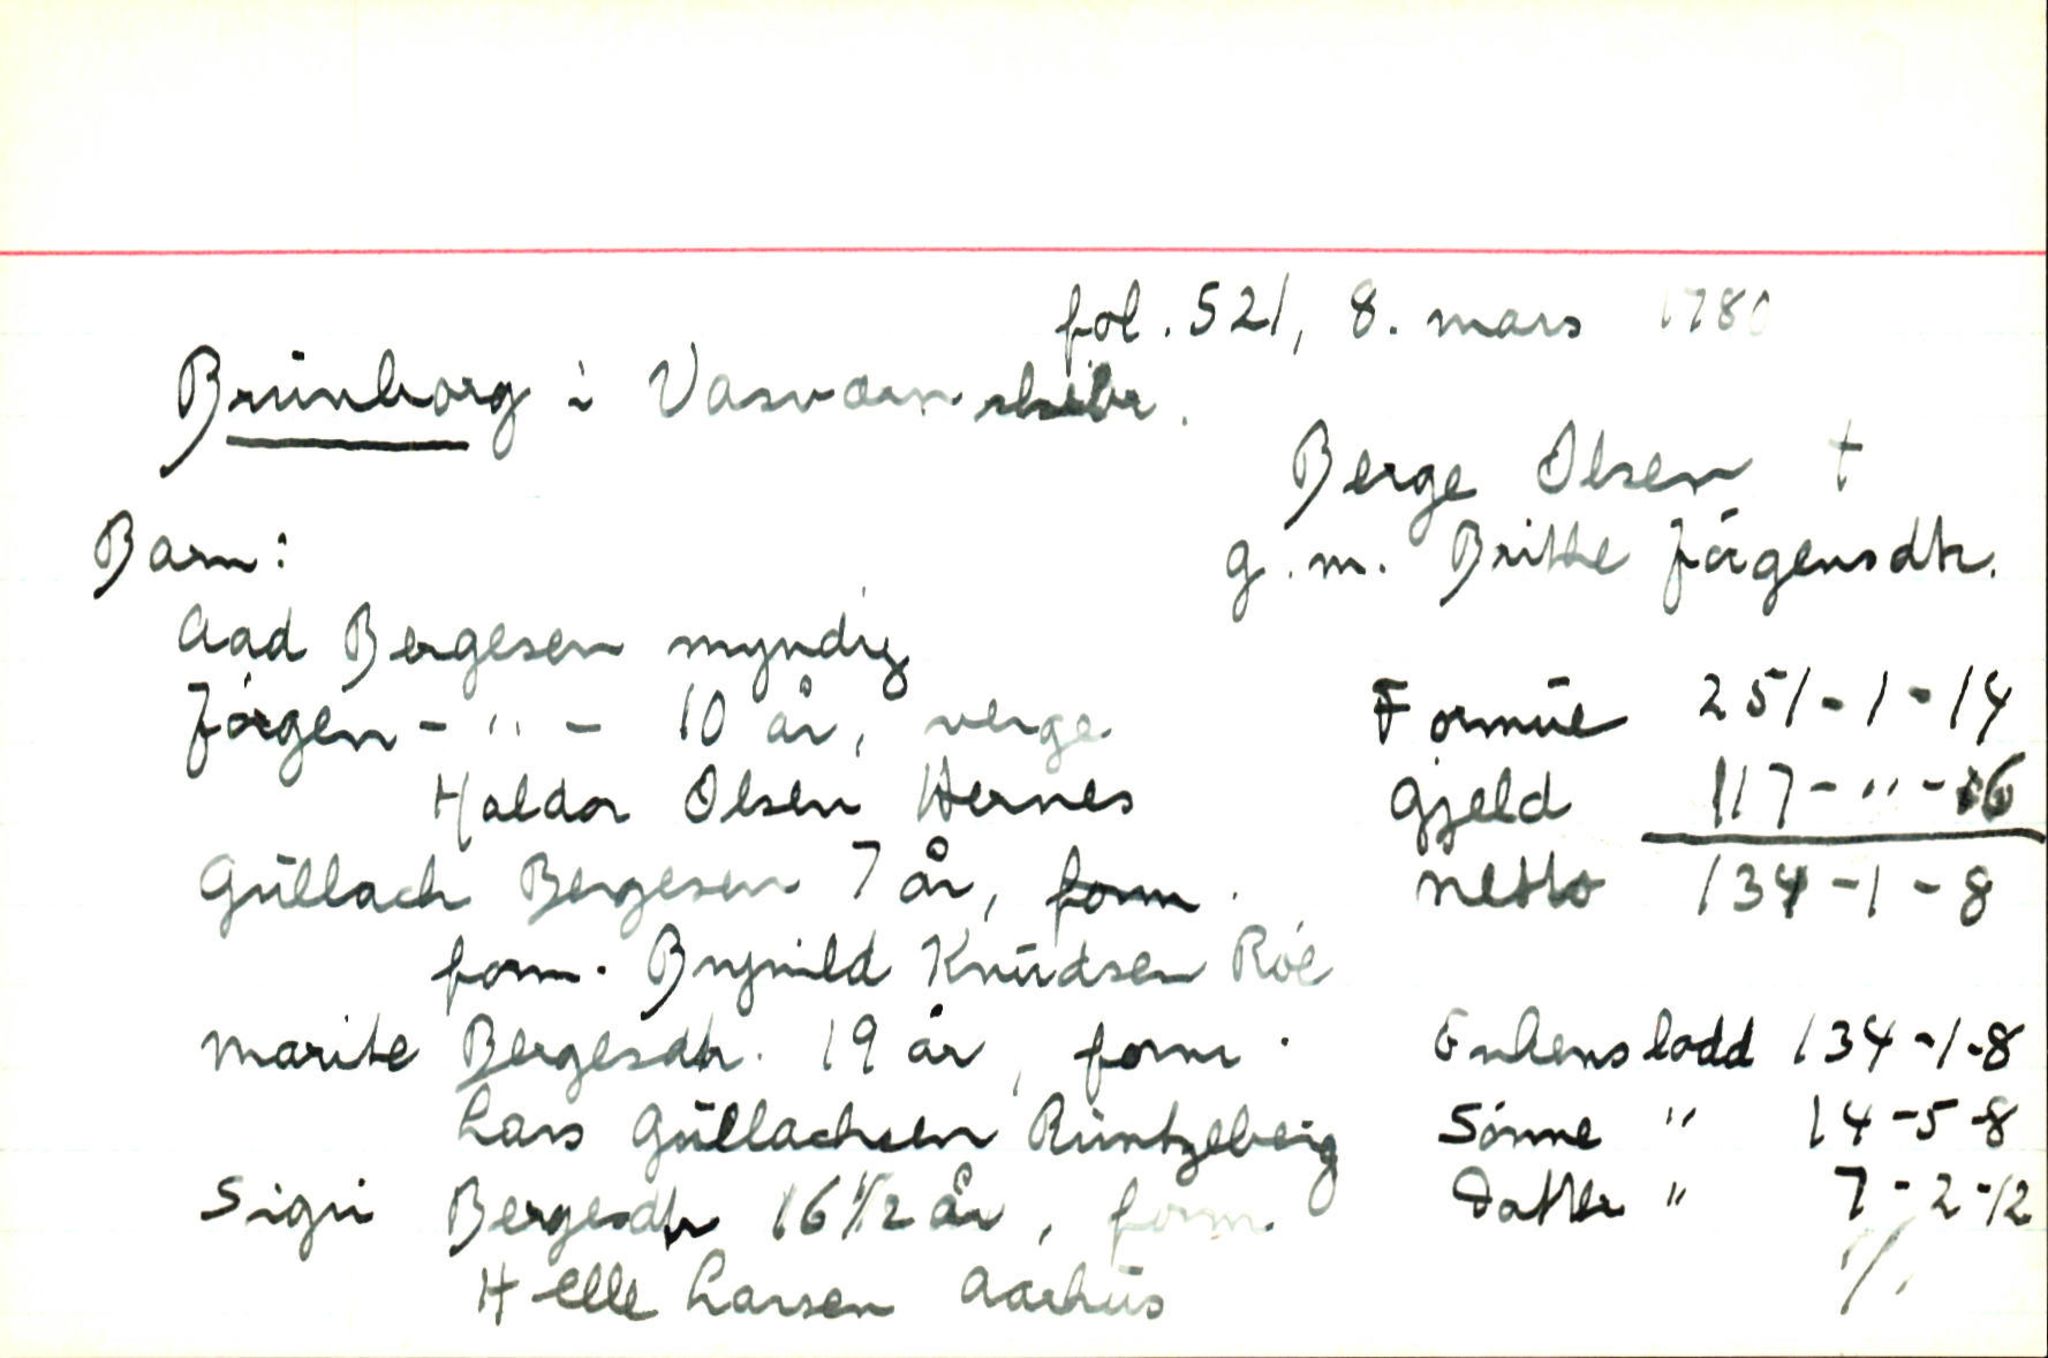 fol. 521, 8. mars 1780
Brünborg i Vasværn skibr.
Berge Olsen †
g. m. Britte Jörgensdtr.
Barn:
Aad Bergesen myndig
Jörgen - " - 10 år, verge
Haldor Olsen Hernes
Güllach Bergesen 7 år, form.
form. Brynild Knüdsen Röe
Marite Bergesdtr. 19 år, form.
Lars Güllachsen Rüntzeberg
Sigri Bergesdtr 16 1/2 år, form.
Helle Larsen Aarhüs
Formüe 251-1-14
Gjeld 117-"-6
Netto 134-1-8
Enkens lodd 134-1-8
Sönne " 14-5-8
Datter " 7-2-12